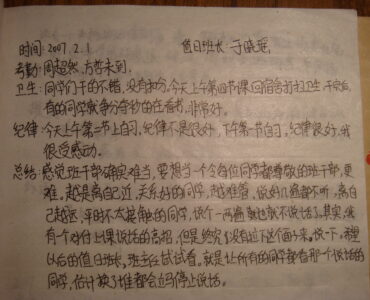 时间:2007.2.1 值日班长:于晓瑶
考勤:周超然,方哲未到.
卫生:同学们干的不错,没有扣分,今天上午第四节课回宿舍打扫卫生,干完后,
有的同学就争分夺秒的在看书,非常好。
纪律:今天上午第一节上自习,纪律不是很好,下午第一节自习,纪律很好,我
很受感动。
总结:感觉班干部确实难当,要想当一个令每位同学都尊敬的班干部,更
难,越是离自己近,关系好的同学,越难管,说好几遍都不听,离自
己越远,平时不太接触的同学,说个一两遍就也就不说话了,其实,我
有个对付上课说话的高招,但是终究没有过不这个面子来,说一下,希望
以后的值日班长,班主任试试看,就是让所有的同学都看那个说话的
同学,估计换了谁都会立马停止说话。